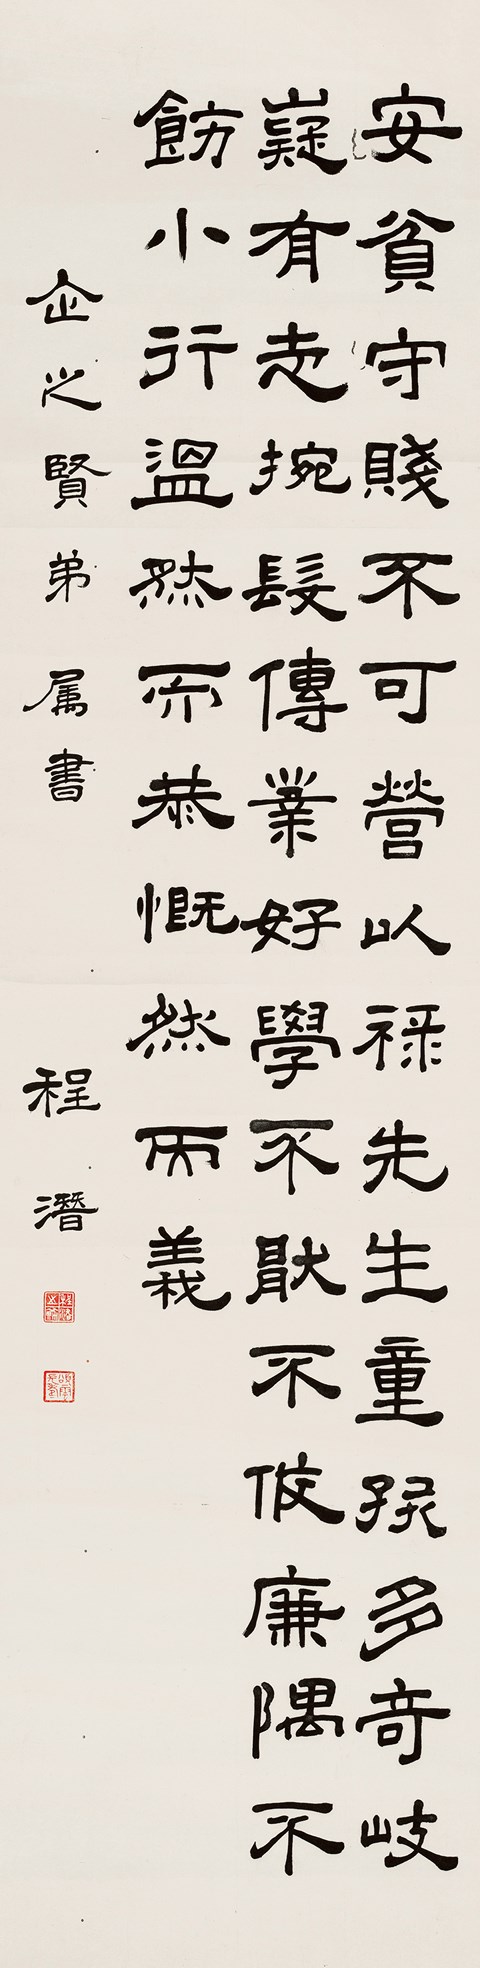 安貧守賤不可營以祿先生童孩多奇岐
嶷有志捥髮傳業好學不猒不攸廉隅不
飭小行溫然而恭慨然而義
企之賢弟属書 程潛